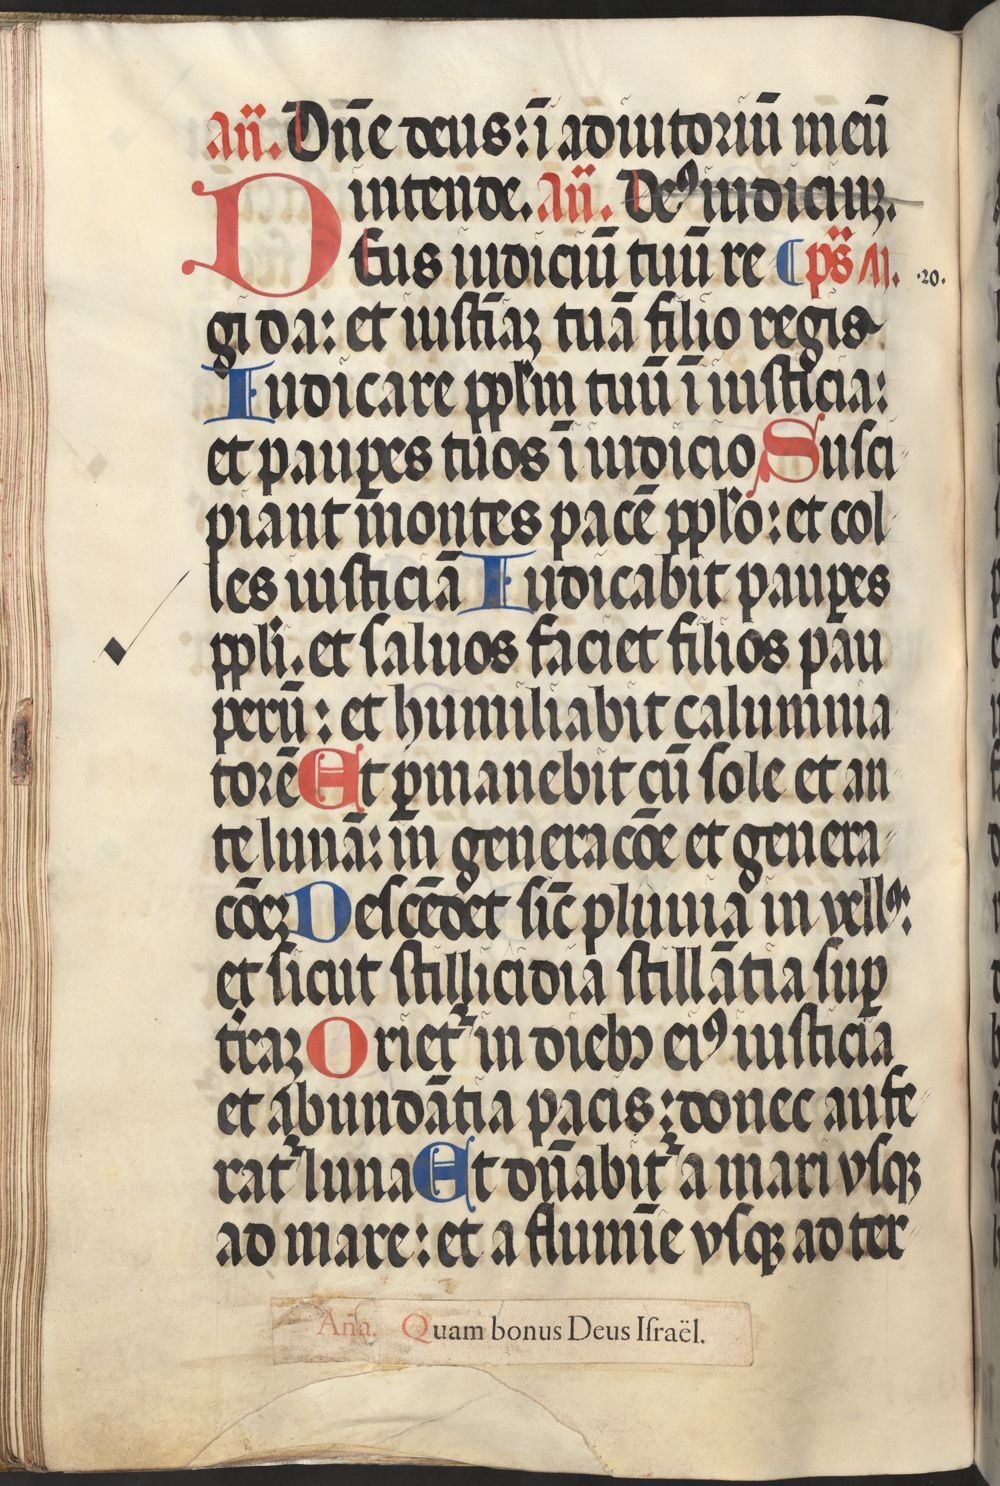 Añ. Dñe deus: ī adiutoriū meū
intende. Añ. Deꝰ iudiciuꝫ.
DEus iudiciū tuū re ps̄
·20.
gi da: et iustīaꝫ tuā filio regis
Iudicare ppl̄m tuū ī iusticia:
et pauꝑes tuos ī iudicio Susci
piant montes pacē ppl̄o: et col
les iusticiā Iudicabit pauꝑes
ppl̄i. et saluos faciet filios pau
perū: et humiliabit calumnia
torē Et ꝑmanebit cū sole et an
te lunā: in generacōe et genera
cōeꝫ Descēdet sic̄ pluuia in vellꝰ:
et sicut stillicidia stillātia suꝑ
t̄raꝫ Orietʳ in diebꝫ eiꝰ iusticia
et abundātia pacis: donec aufe
ratʳ luna Et dn̄abitʳ a mari vsqꝫ
ad mare: et a flumīe vsqꝫ ad ter
Aña. Quam bonus Deus Iſraël.